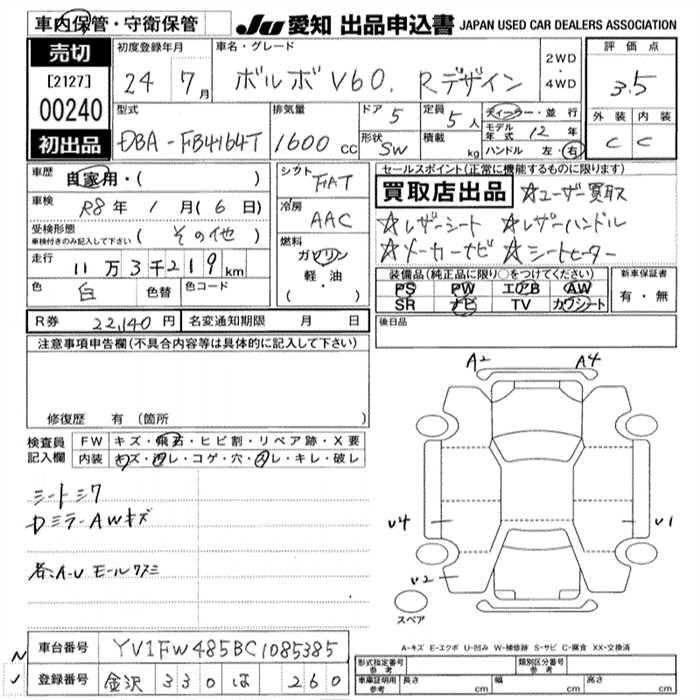 車内保管・守衛保管
JU 愛知 出品申込書 JAPAN USED CAR DEALERS ASSOCIATION
売切
[2127]
00240
初出品
初度登録年月
24 7月
車名・グレード
ボルボV60. Rデザイン
2WD
・
4WD
評価点
3.5
外装 内装
C C
型式
DBA-FB4164T
排気量
1600 cc
ドア 5
形状 SW
定員 5人
積載 kg
ディーラー・並行
モデル年式 12年
ハンドル 左・右
車歴 自家用・( )
車検 R8年 1月(6日)
受検形態 車検付きのみ記入して下さい (その他)
走行 11万3千219km
色 白 色替 色コード
シフト FAT
冷房 AAC
燃料
ガソリン
軽・油
( ・ )
セールスポイント(正常に機能するものに限ります)
買取店出品 ☆ユーザー買取
☆レザーシート ☆レザーハンドル
☆メーカーナビ ☆シートヒーター
装備品(純正品に限り○をつけてください)
PS PW エアB AW
SR ナビ TV カワシート
新車保証書
有・無
R券 22,140円 名変通知期限 月 日
後日品
注意事項申告欄(不具合内容等は具体的に記入して下さい)
修復歴 有(箇所 )
検査員記入欄
FW キズ・飛石・ヒビ割・リペア跡・X要
内装 キズ・汚レ・コゲ・穴・スレ・キレ・破レ
シートシワ
Dミラー・AWキズ
各:A-U モール
A2 A4
U4 U1
U2
スペア
A-キズ E-エクボ U-凹み W-補修跡 S-サビ C-腐食 XX-交換済
車台番号 YV1FW485BC1085385
登録番号 金沢 330 は 260
形式指定番号 参考
類別区分番号 参考
車庫証明用 参考 長さ cm 幅 cm 高さ cm